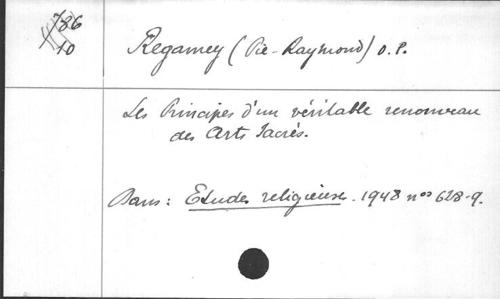 786
10
Regamey (Pie-Raymond) O.P.
Les Principes d'un véritable renouveau
des Arts Sacrés.
Dans : Etudes religieuses. 1948 nos 628-9.